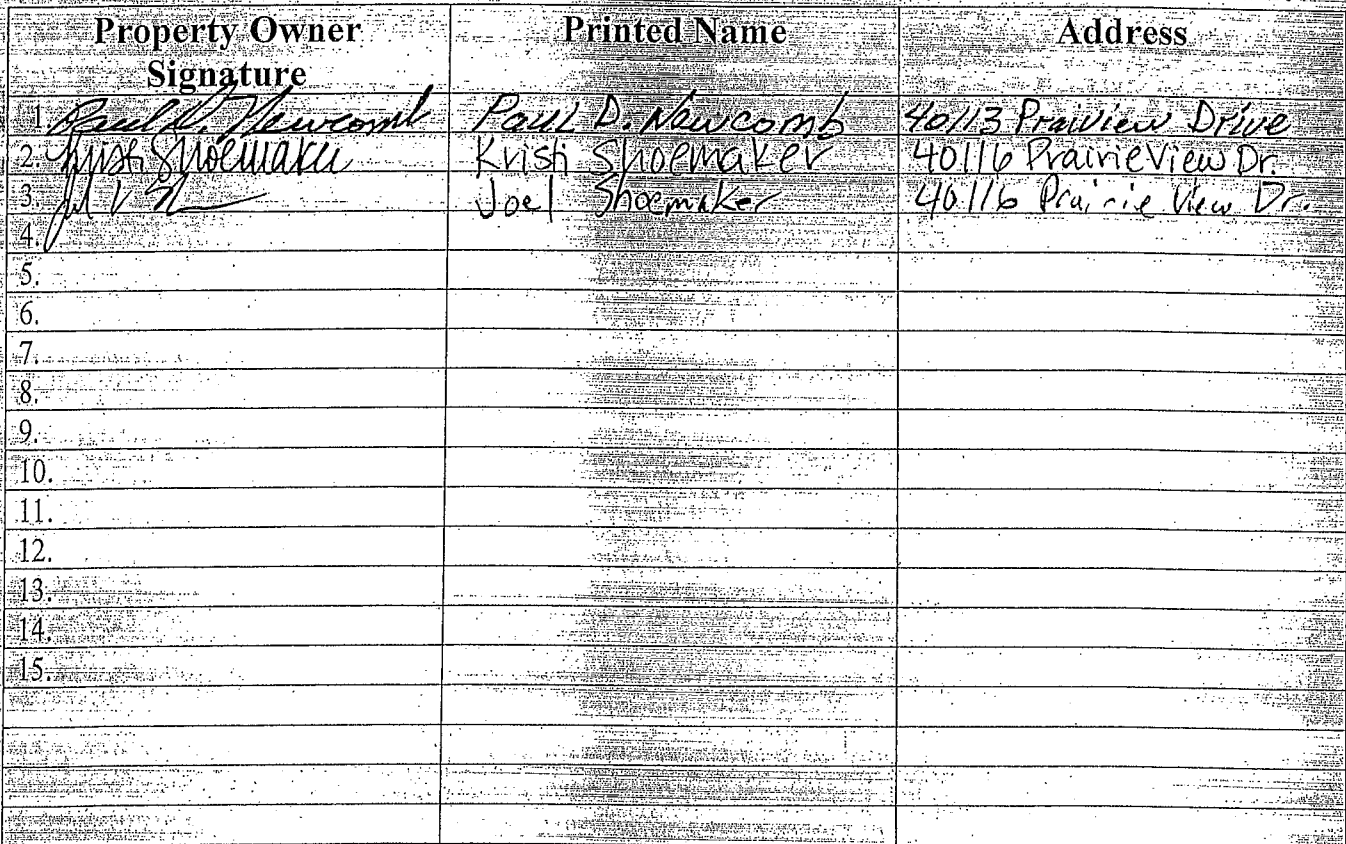 Property Owner Signature Printed Name Address
1. Paul D. Newcomb Paul D. Newcomb 40113 Praiview Drive
2. Kristi Shoemaker Kristi Shoemaker 40116 PrairieView Dr.
3. Joel Shoemaker 40116 Prairie View Dr.
4.
5.
6.
7.
8.
9.
10.
11.
12.
13.
14.
15.